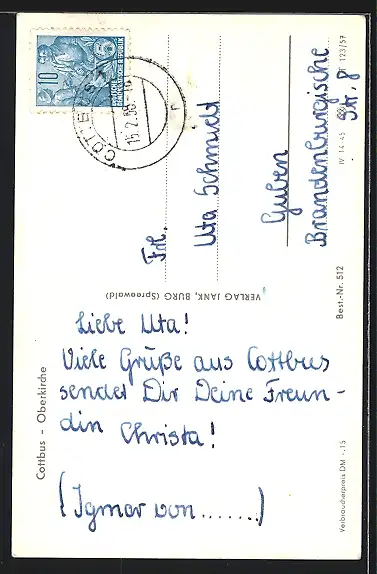 Cottbus - Oberkirche
Liebe Uta!
Viele Grüße aus Cottbus
sendet Dir Deine Freun-
din Christa!
(Igmar von.......)
10
DEUTSCHE DEMOKRATISCHE REPUBLIK
COTTBUS
15.2.58
Frl.
Uta Schmidt
Guben
Brandenburgische
Str. 8
VERLAG JANK, BURG (Spreewald)
Best.-Nr. 512
Verbraucherpreis DM -,15
IV 14-45
123/57